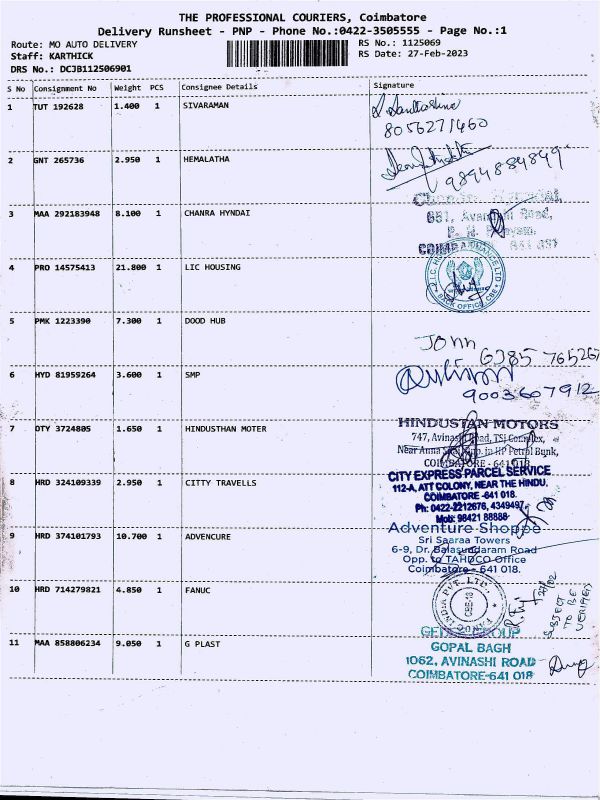 THE PROFESSIONAL COURIERS, Coimbatore
Delivery Runsheet - PNP - Phone No.:0422-3505555 - Page No.:1
Route: MO AUTO DELIVERY RS No.: 1125069
Staff: KARTHICK RS Date: 27-Feb-2023
DRS No.: DCJB112506901
S No Consignment No Weight PCS Consignee Details Signature
1 TUT 192628 1.400 1 SIVARAMAN
8056271460
2 GNT 265736 2.950 1 HEMALATHA
9894884849
3 MAA 292183948 8.100 1 CHANRA HYNDAI
681, Avanashi Road,
COIMBATORE
4 PRO 14575413 21.800 1 LIC HOUSING
BACK OFFICE CBE
5 PMK 1223390 7.300 1 DOOD HUB
John
6385 765267
6 HYD 81959264 3.600 1 SMP
9003607912
7 OTY 3724805 1.650 1 HINDUSTHAN MOTER
HINDUSTAN MOTORS
747, Avinashi Road, TSJ Complex,
Near Anna Opp. to HP Petrol Bunk,
COIMBATORE - 641 018.
8 HRD 324109339 2.950 1 CITTY TRAVELLS
CITY EXPRESS PARCEL SERVICE
112-A, ATT COLONY, NEAR THE HINDU,
COIMBATORE -641 018.
Ph: 0422-2212676, 4349497,
Mob: 98421 88888
9 HRD 374101793 10.700 1 ADVENCURE
Adventure Shoppe
Sri Saaraa Towers
6-9, Dr. Balasundaram Road
Opp. to TAHDCO Office
Coimbatore - 641 018.
10 HRD 714279821 4.850 1 FANUC
FANUC INDIA PVT. LTD.
CBE-18
27/02
SUBJECT
TO BE
VERIFIED
11 MAA 858806234 9.050 1 G PLAST
GROUP
GOPAL BAGH
1062, AVINASHI ROAD
COIMBATORE-641 018